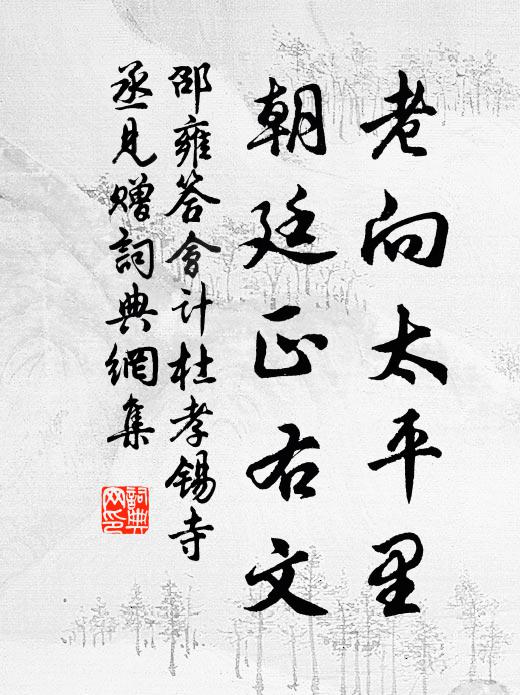 老向太平里
朝廷正右文
邵雍答會計杜孝錫寺
丞見贈詞典網集
詞典
网印